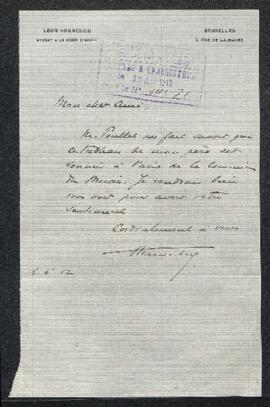 LÉON HENNEBICQ
AVOCAT À LA COUR D'APPEL
BRUXELLES
1, RUE DE LAUSANNE
Mon cher Ami,
M. Poullet me fait savoir que
le tableau de mon père est
soumis à l'avis de la commission
du Musée. Je voudrais bien
vous voir pour avoir votre
sentiment
Cordialement à vous